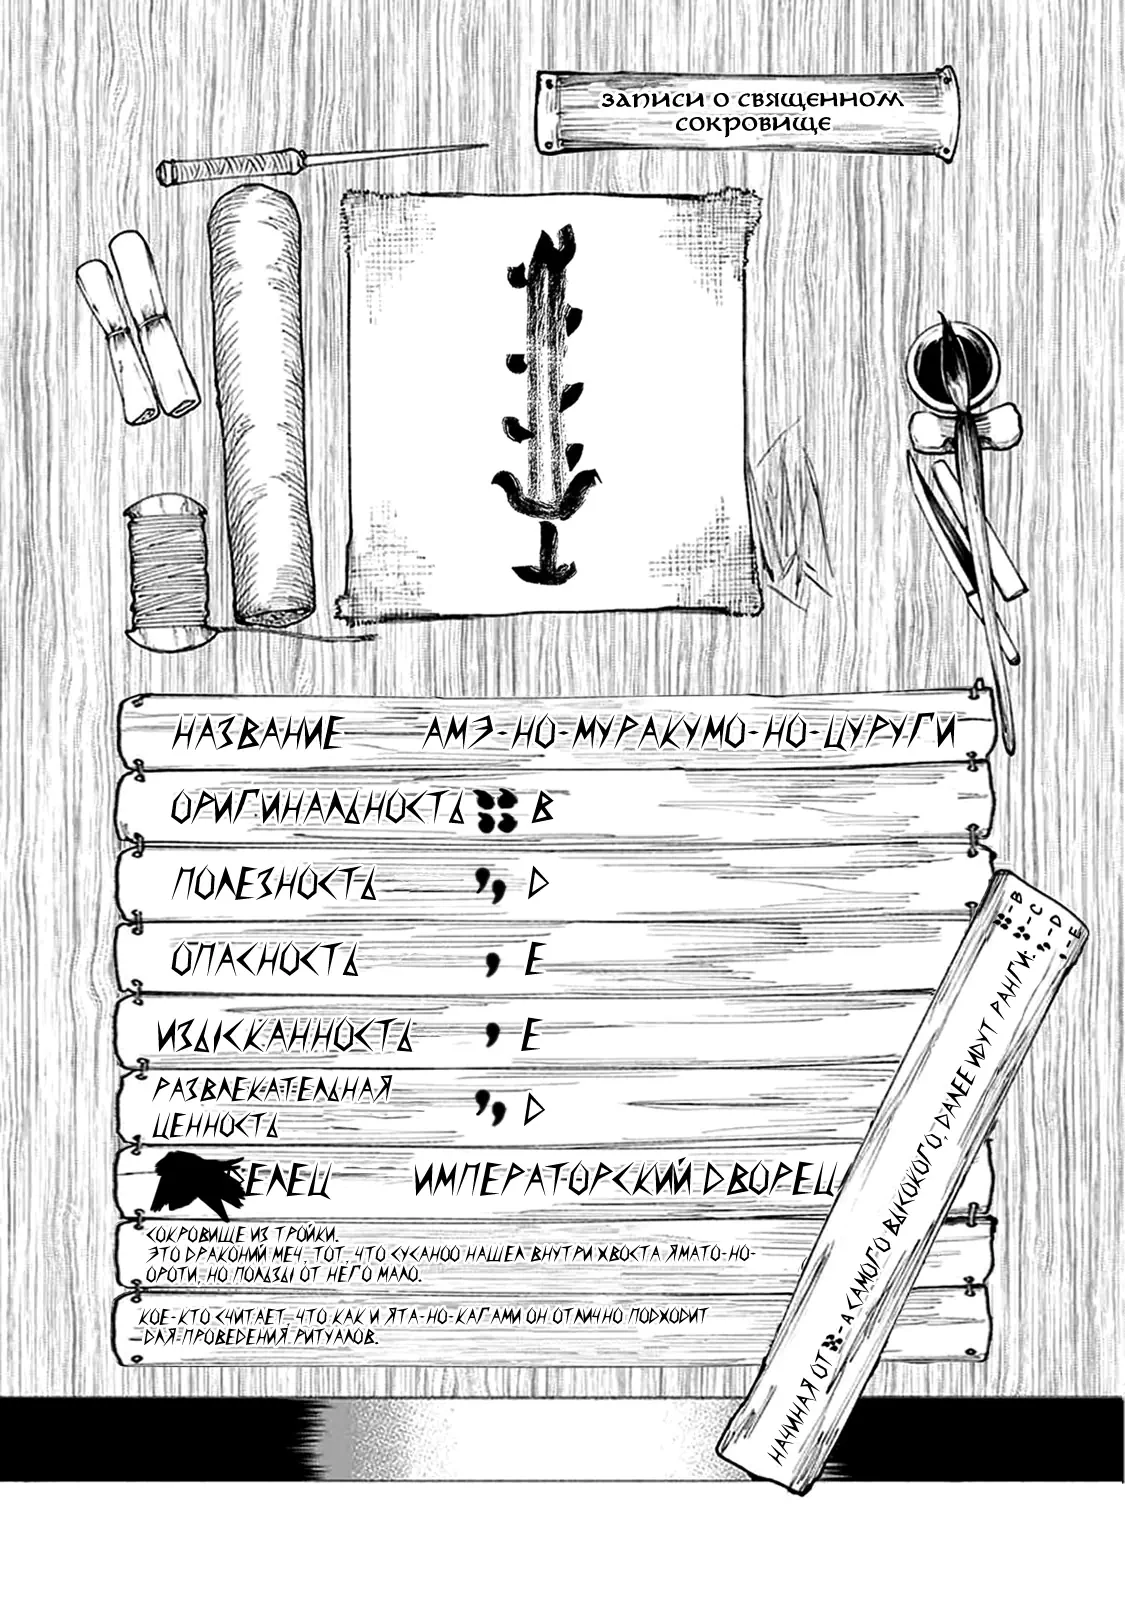 ЗАПИСИ О СВЯЩЕННОМ
СОКРОВИЩЕ
НАЗВАНИЕ АМЭ-НО-МУРАКУМО-НО-ЦУРУГИ
ОРИГИНАЛЬНОСТЬ B
ПОЛЕЗНОСТЬ D
ОПАСНОСТЬ E
ИЗЫСКАННОСТЬ E
РАЗВЛЕКАТЕЛЬНАЯ
ЦЕННОСТЬ D
ЕЛЕЦ ИМПЕРАТОРСКИЙ ДВОРЕЦ
СОКРОВИЩЕ ИЗ ТРОЙКИ.
ЭТО ДРАКОНИЙ МЕЧ, ТОТ, ЧТО СУСАНОО НАШЕЛ ВНУТРИ ХВОСТА ЯМАТО-НО-
ОРОТИ, НО ПОЛЬЗЫ ОТ НЕГО МАЛО.
КОЕ-КТО СЧИТАЕТ, ЧТО КАК И ЯТА-НО-КАГАМИ ОН ОТЛИЧНО ПОДХОДИТ
ДЛЯ ПРОВЕДЕНИЯ РИТУАЛОВ.
НАЧИНАЯ ОТ -А САМОГО ВЫСОКОГО, ДАЛЕЕ ИДУТ РАНГИ:
-B
-C
-D
-E